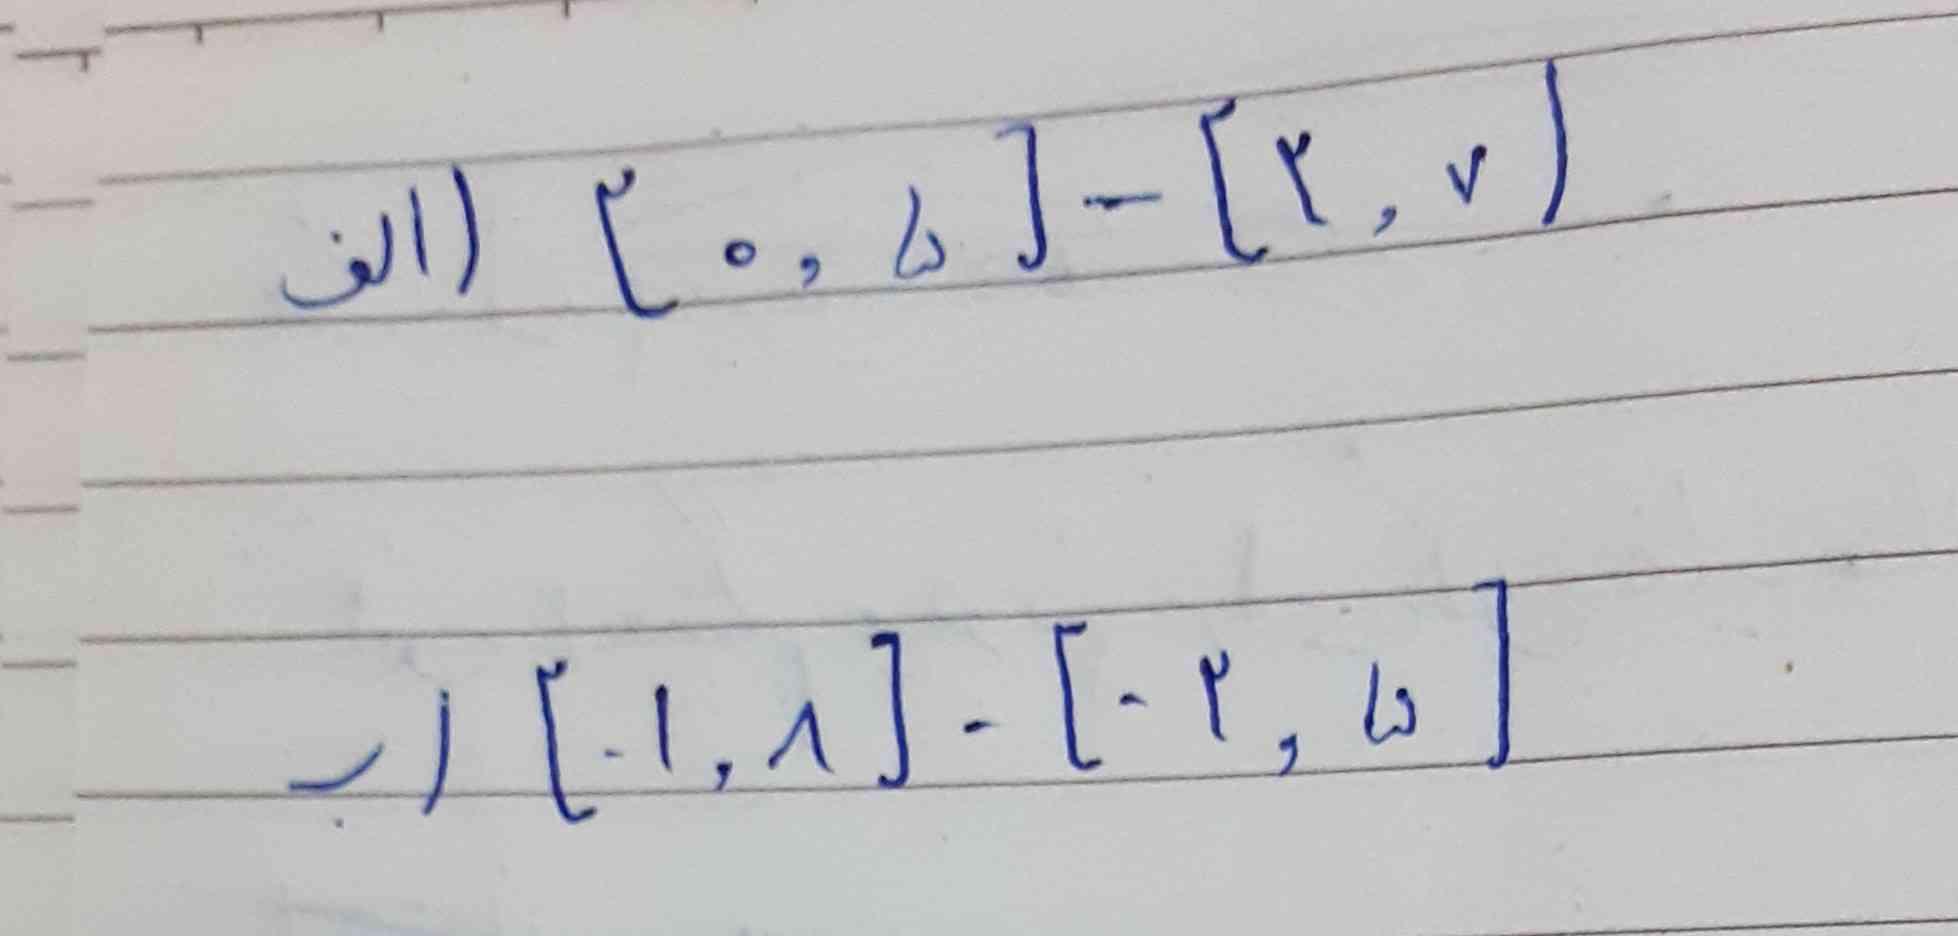 الف) [۰, ۵] - [۲, ۷)
ب) [-۱, ۸] - [-۲, ۵]